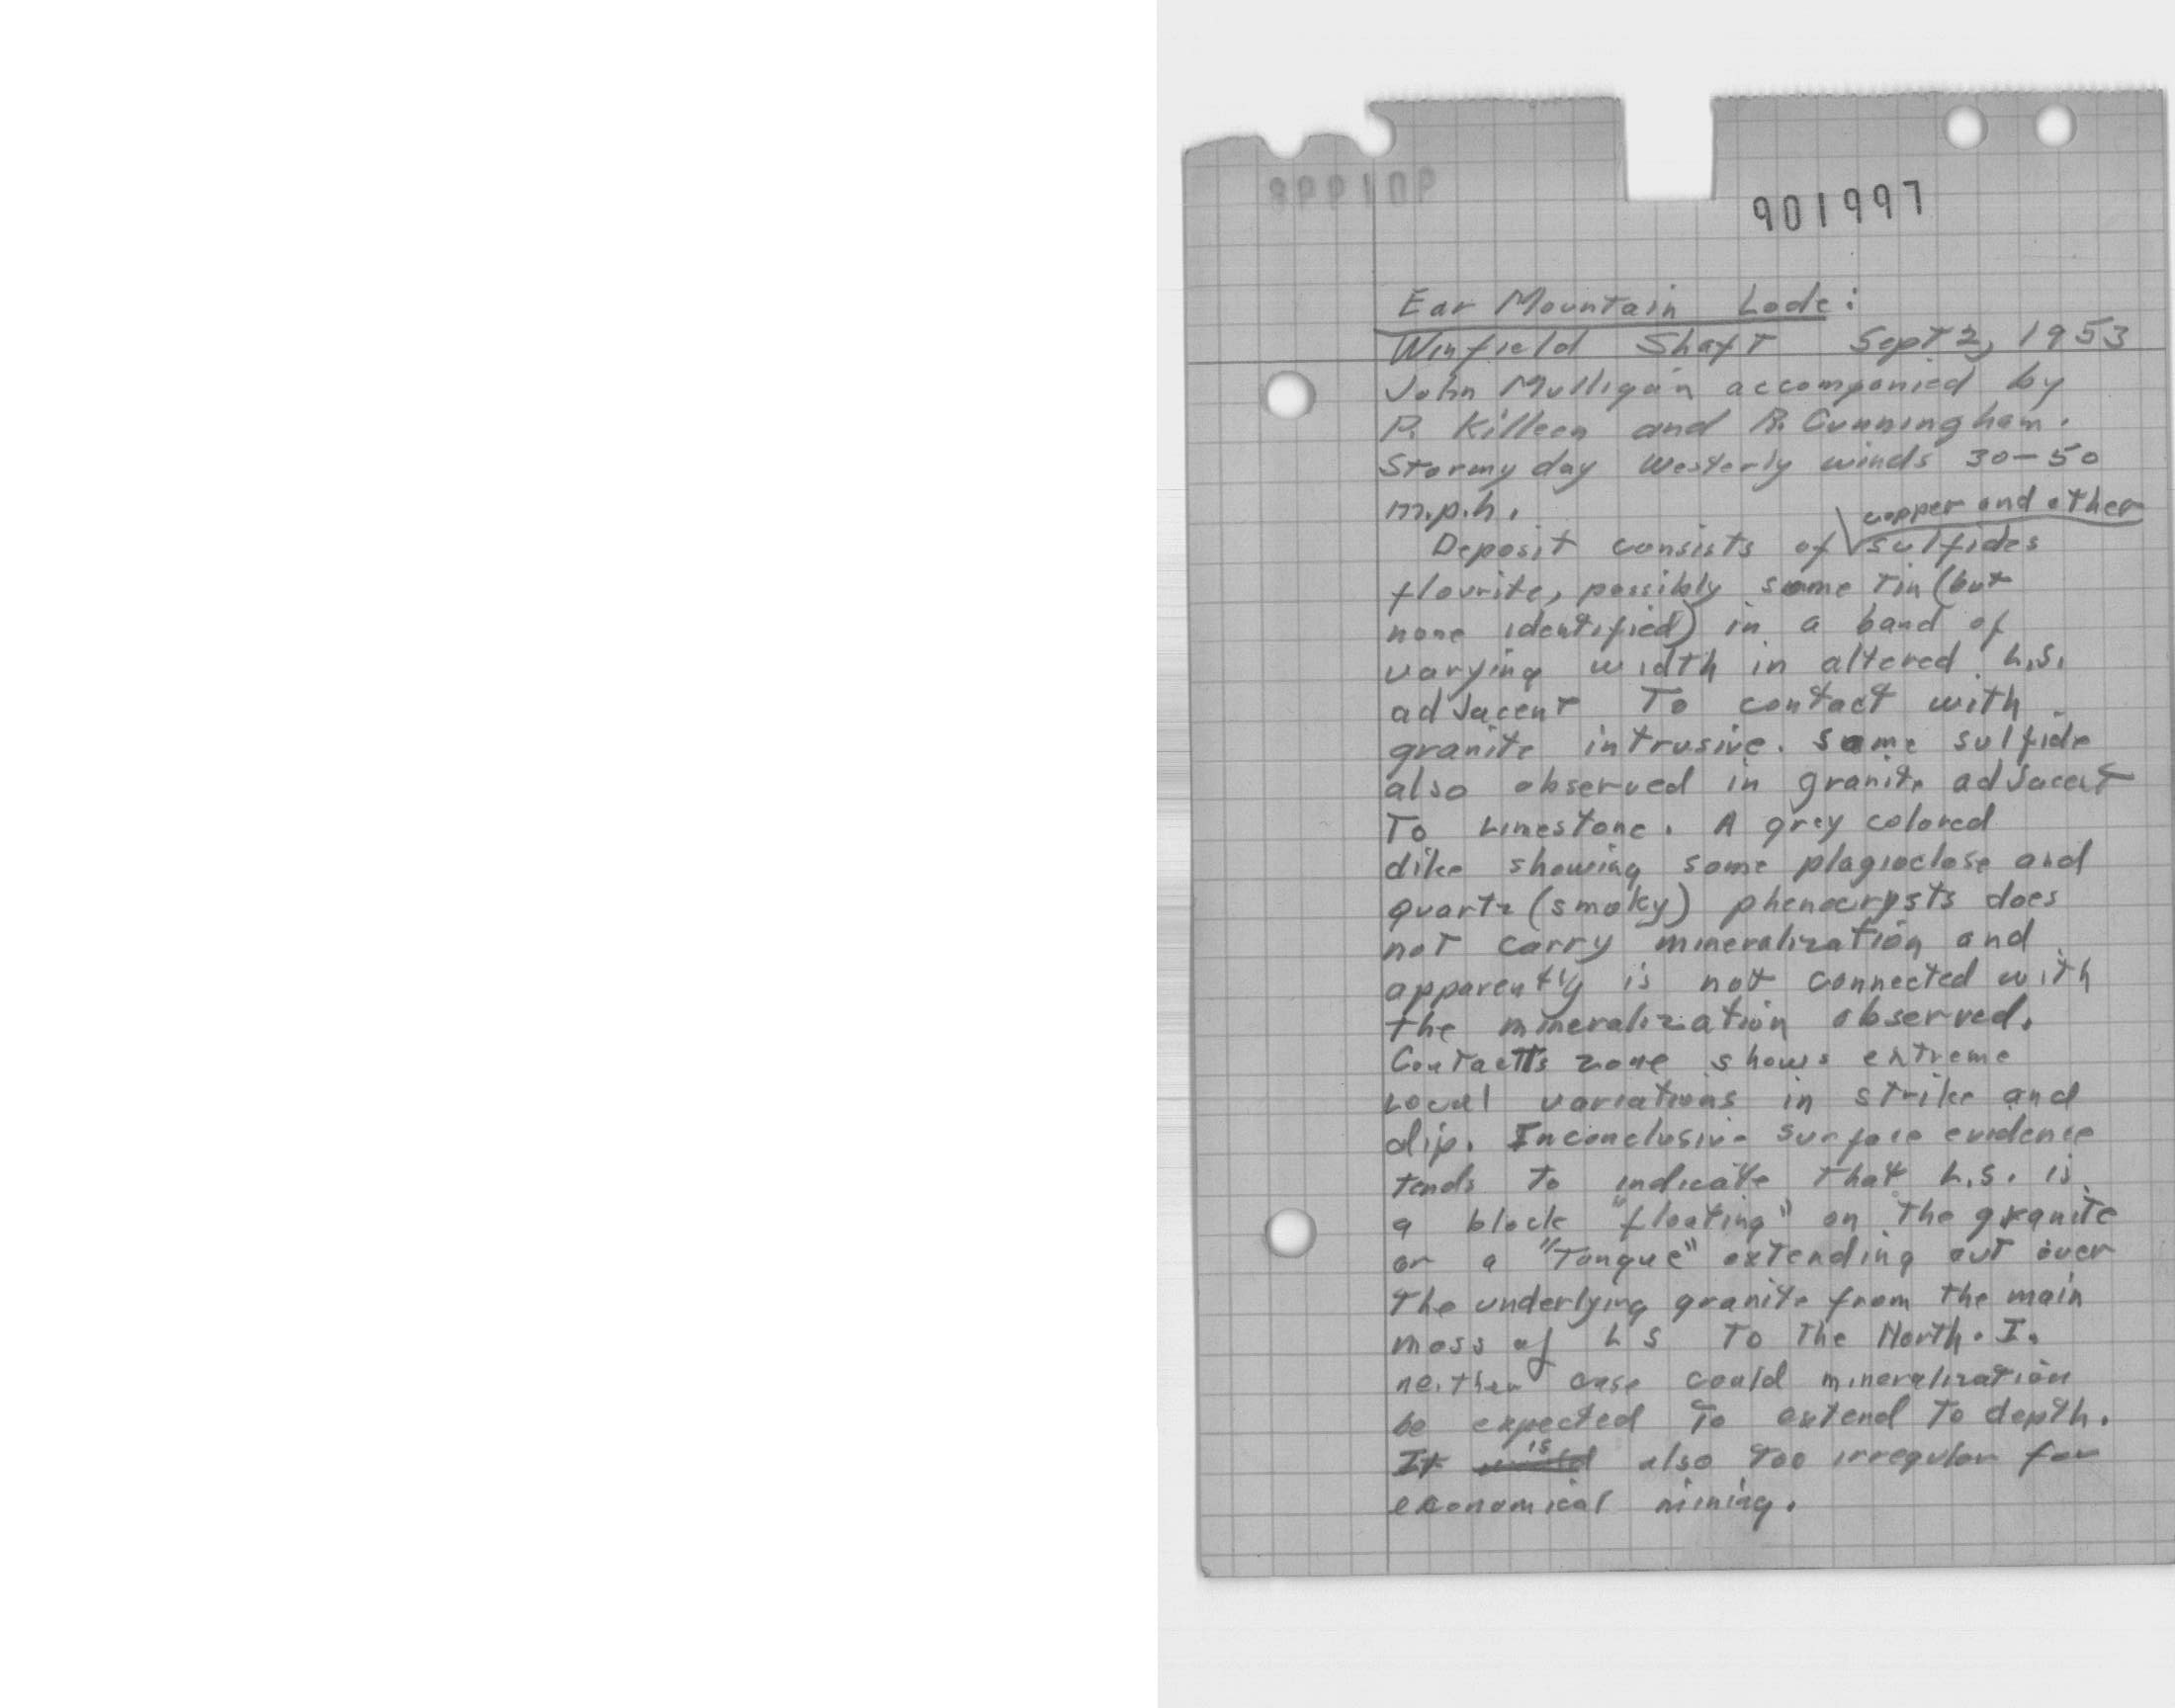 901997
Ear Mountain Lode:
Winfield Shaft Sept 2, 1953
John Mulligan accompanied by
P. Killeen and R. Cunningham.
Stormy day Westerly winds 30-50
m.p.h.
copper and other
Deposit consists of sulfides
flourite, possibly some tin (but
none identified) in a band of
varying width in altered L.S.
adjacent To contact with
granite intrusive. Some sulfide
also observed in granite adjacent
To Limestone. A grey colored
dike showing some plagioclase and
quartz (smoky) phenocrysts does
not carry mineralization and
apparently is not connected with
the mineralization observed.
Contacts zone shows extreme
Local variations in strike and
dip. Inconclusive surface evidence
tends to indicate that L.S. is
a block "floating" on the granite
or a "Tongue" extending out over
The underlying granite from the main
mass of L S To The North. In
neither case could mineralization
be expected To extend To depth.
It is also too irregular for
economical mining.